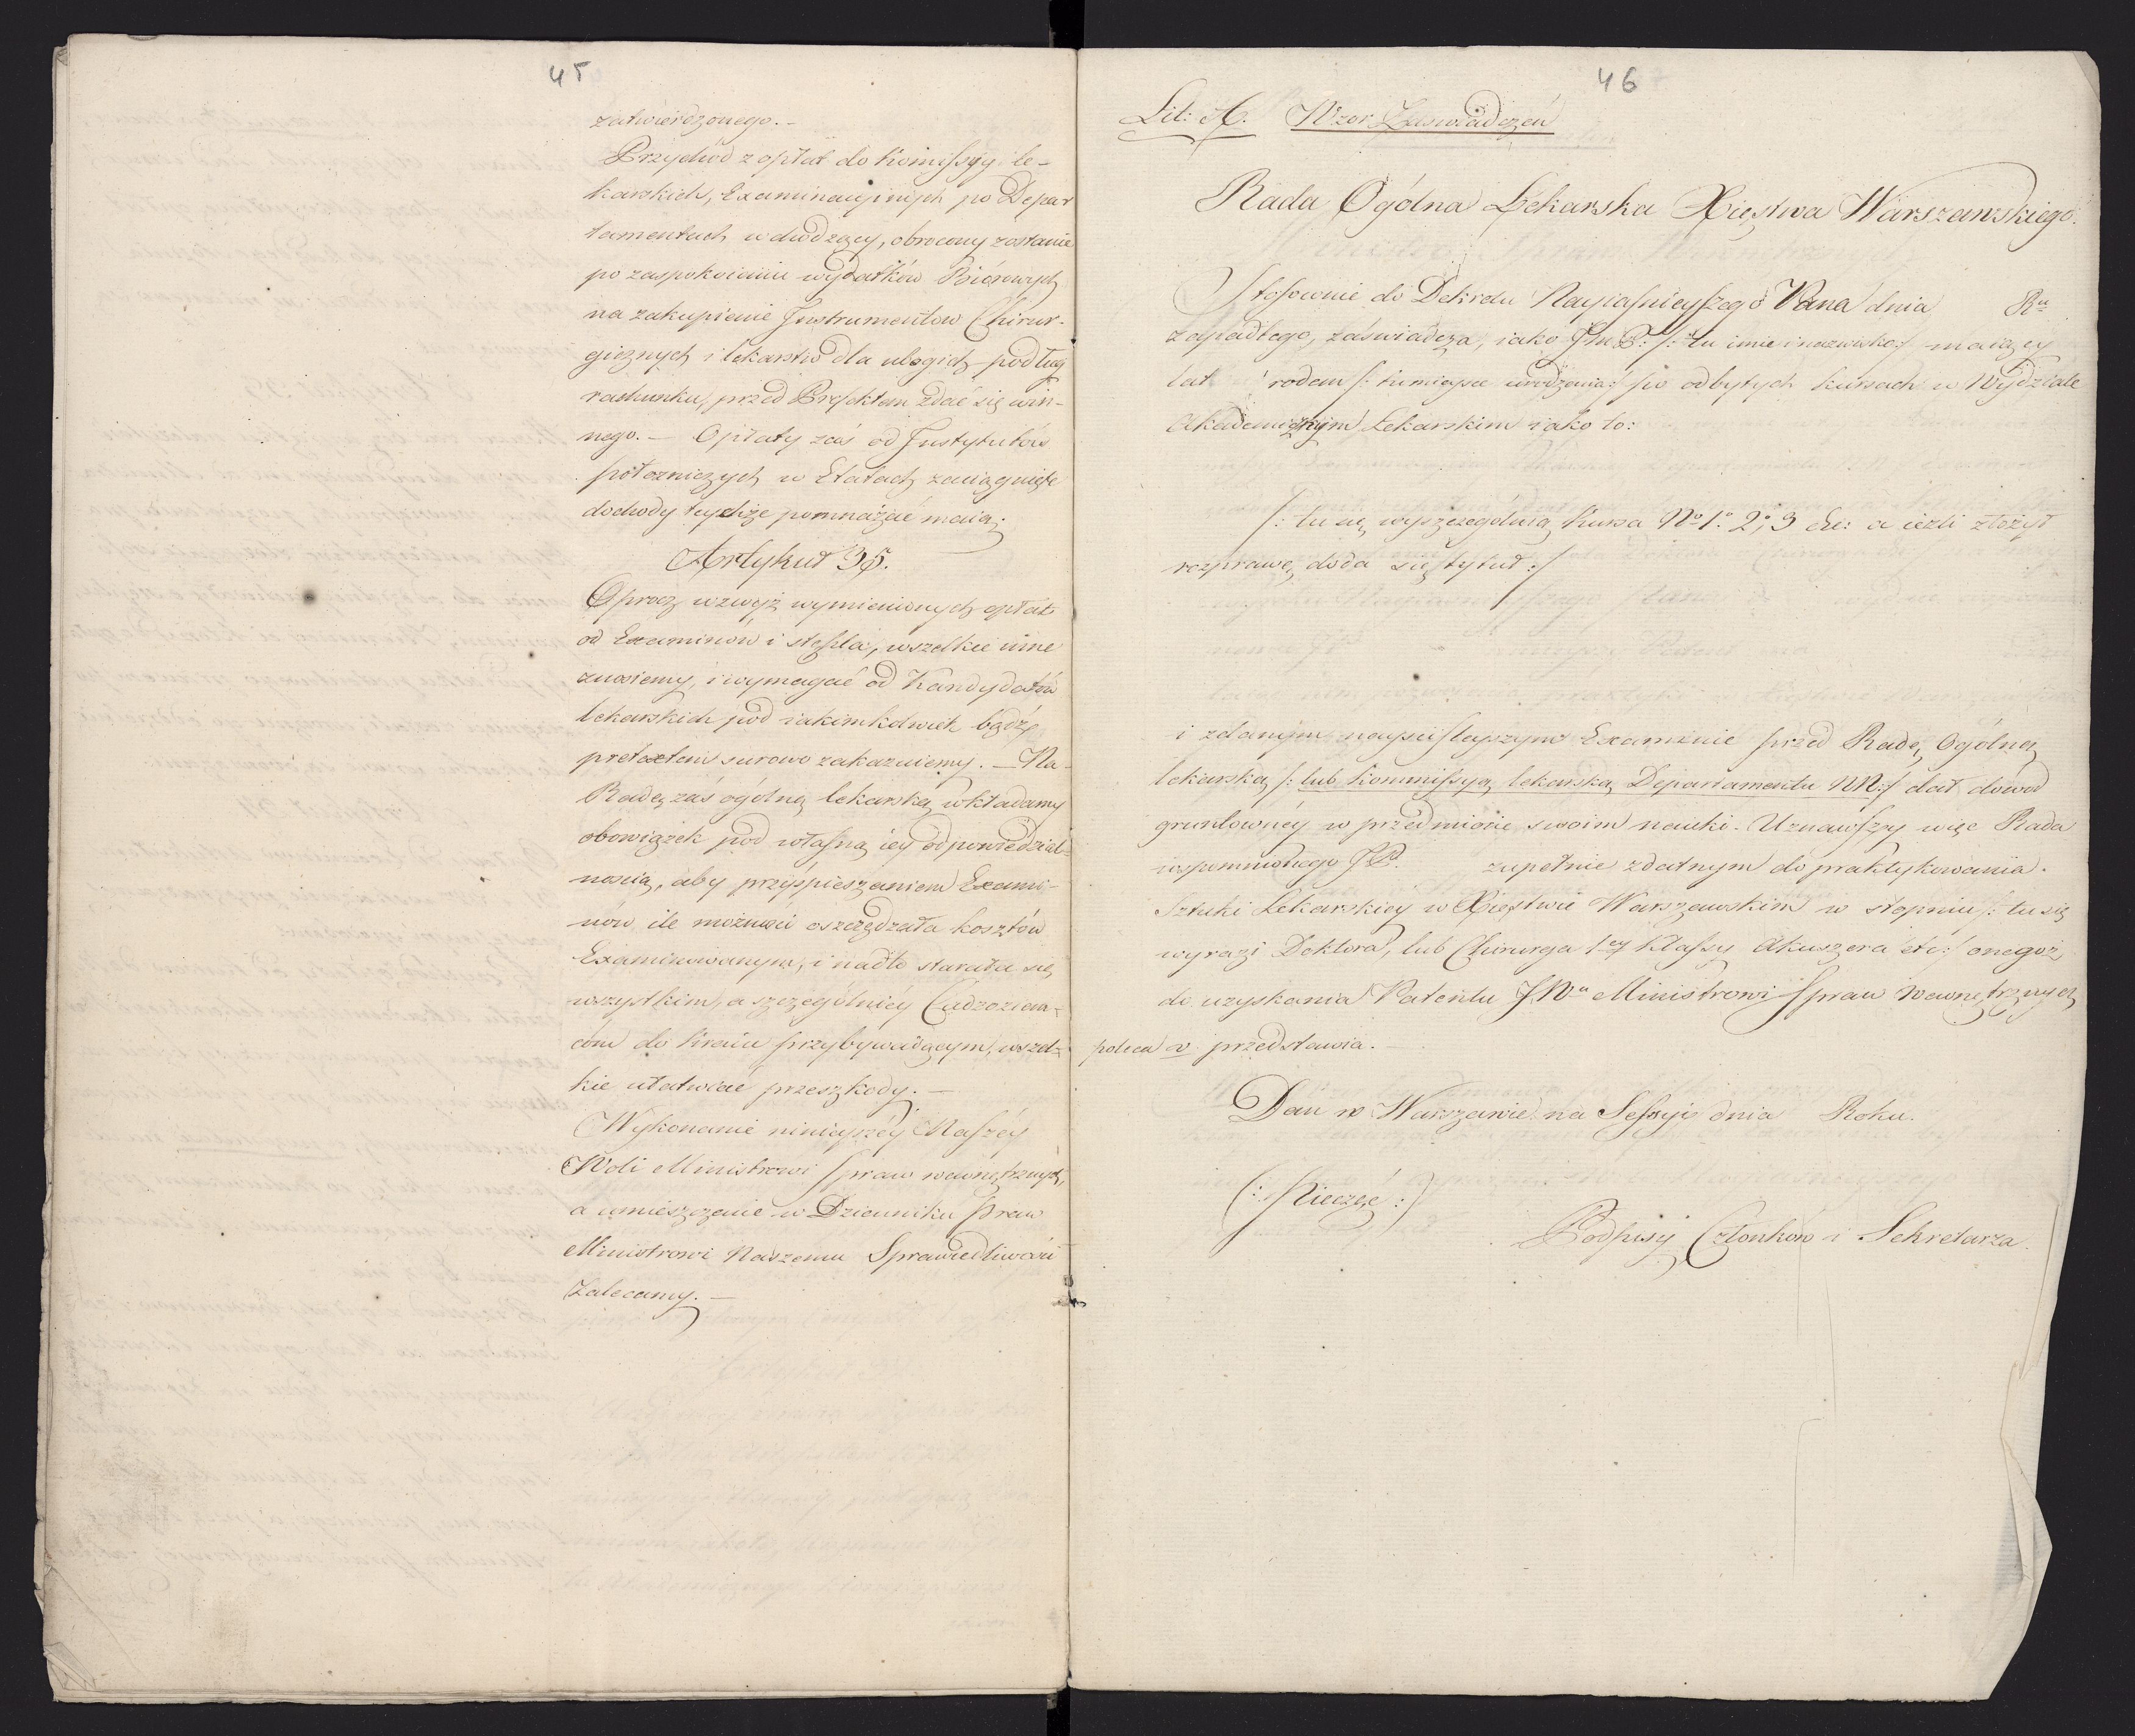 45
zatwierdzonego. -
Przychód z opłat do Komissyy le-
karskich, Examinacyinych po Depar
tamentach wchodzący, obrocony zostanie
po zaspokoieniu wydatków Biórowych
na zakupienie Instrumentow Chirur-
gicznych i lekarstw dla ubogich podług
rachunku, przed Prefektem zdać się win-
nego. - Opłaty zaś od Instytutów
położniczych w Etatach zaciągnięte
dochody tychże pomnażać maią.
Artykuł 35.
Oprocz wzwyż wymienionych opłat
od Examinów i stępla, wszelkie inne
znosiemy, i wymagać od Kandydatów
lekarskich pod iakimkolwiek bądź
pretextem surowo zakazuiemy. - Na
Radę zaś ogólną lekarską wkładamy
obowiązek pod własną iey odpowiedzial-
nością, aby przyśpieszaniem Exami-
nów ile możności oszczędzała kosztów
Examinowanym, i nadto starała się
wszystkim, a szczególniéy Cudzoziem-
com do Kraiu przybywaiącym, wszel-
kie ułatwiać przeszkody. -
Wykonanie ninieyszéy Naszéy
Woli Ministrowi Spraw wewnętrznych,
a umieszczenie w Dzienniku Praw
Ministrowi Naszemu Sprawiedliwości
Zalecamy. -
46
Lit: A. Wzor Zaswiadczeń
Rada Ogólna Lekarska Xięstwa Warszawskiego.
Stosownie do Dekretu Nayiaśnieyszego Pana dnia Ru
zapadłego, zaświadcza, iako J P: /: tu imie i nazwisko :/ maiący
lat rodem /: tu mieysce urodzenia :/ po odbytych kursach w Wydziale
Akademicznym Lekarskim iako to:
/: tu się wyszczególnią Kursa No 1o 2o, 3 &c: a ieżli złożył
rozprawę, doda się tytuł :/
i zdanym nayściśleyszym Examinie przed Radą Ogólną
lekarską /: lub Kommissyą lekarską Departamentu NN :/ dał dowod
gruntownéy w przedmiocie swoim nauki. Uznawszy więc Rada
wspomnionego J P. zupełnie zdatnym do praktykowania
Sztuki Lekarskiey w Xięstwie Warszawskim w stopniu /: tu się
wyrazi Doktora, lub Chirurga 1ey Klassy Akuszera etc :/ onegoż
do uzyskania Patentu JWu Ministrowi Spraw Wewnętrznych
poleca v przedstawia. -
Dan w Warszawie na Sessyi dnia Roku.
(: Pieczęć :)
Podpisy Członkow i Sekretarza.